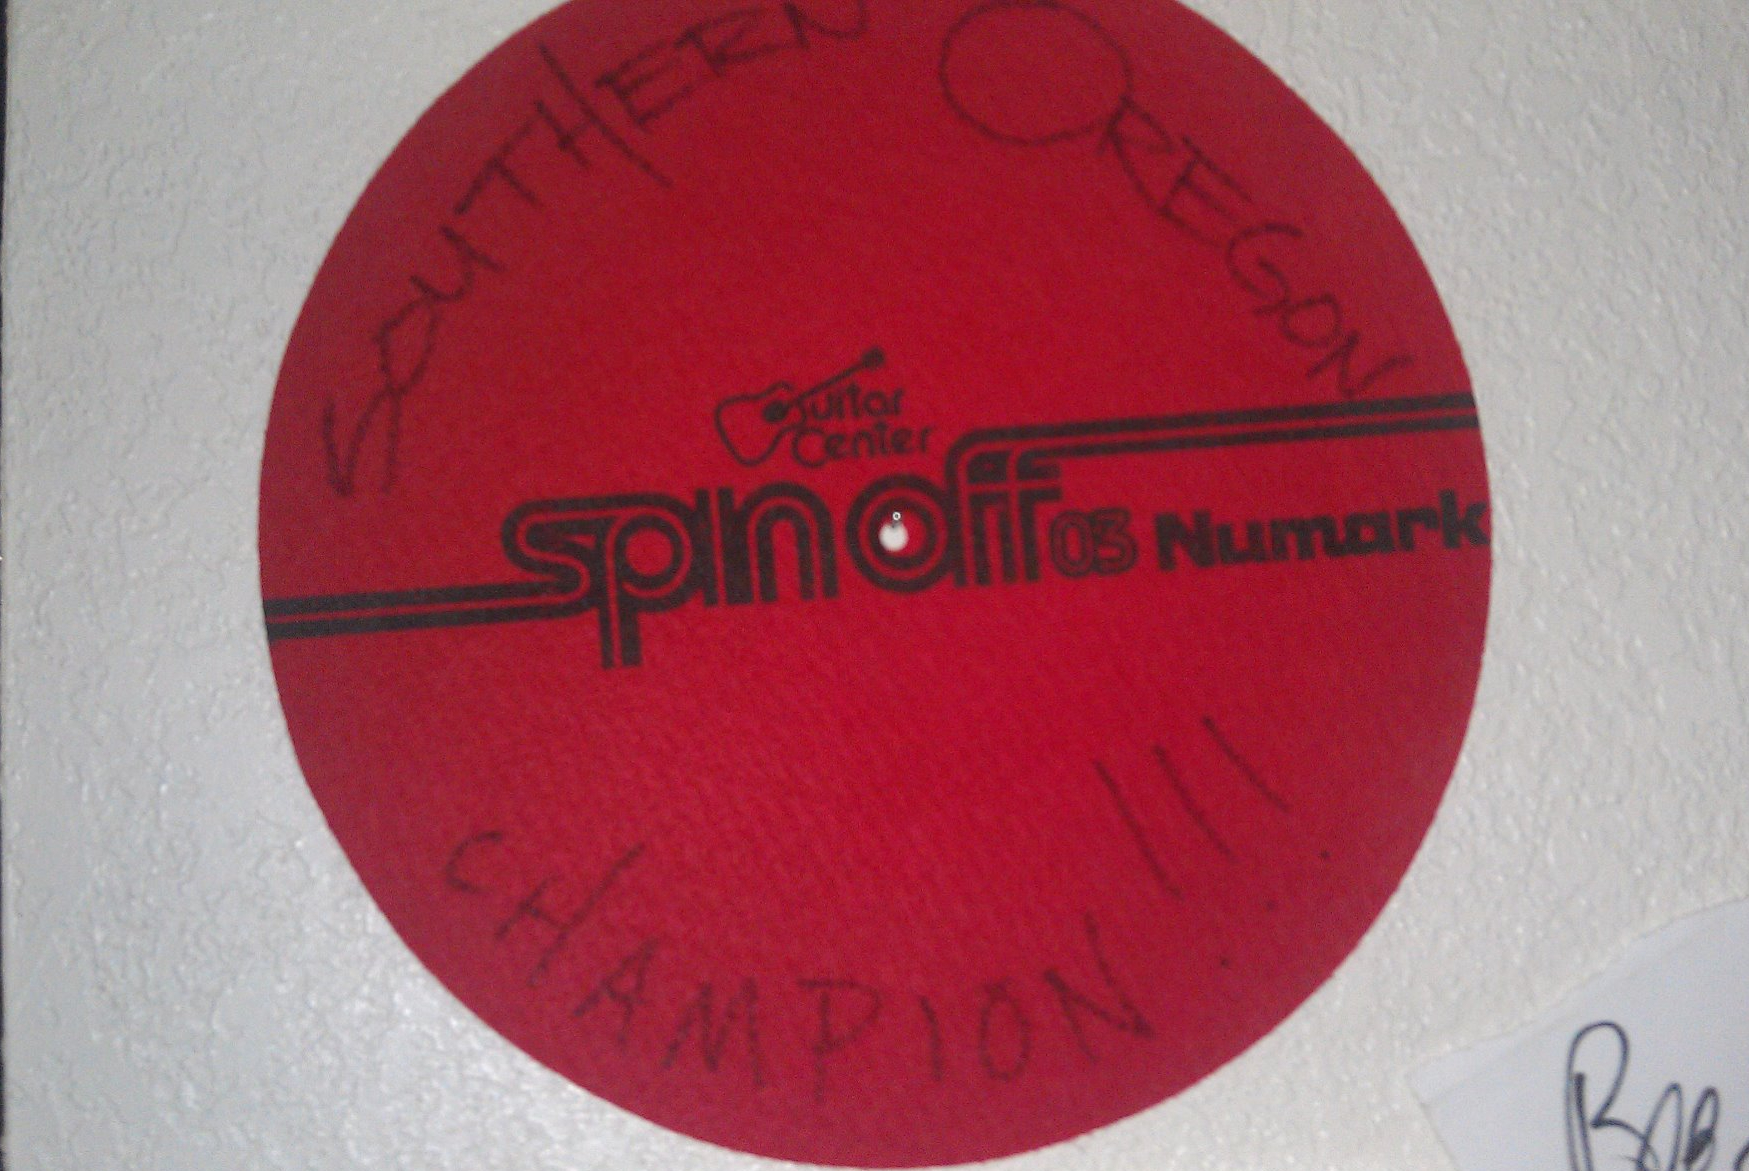 SOUTHERN OREGON
Guitar
Center
spin off 03 Numark
CHAMPION!!!